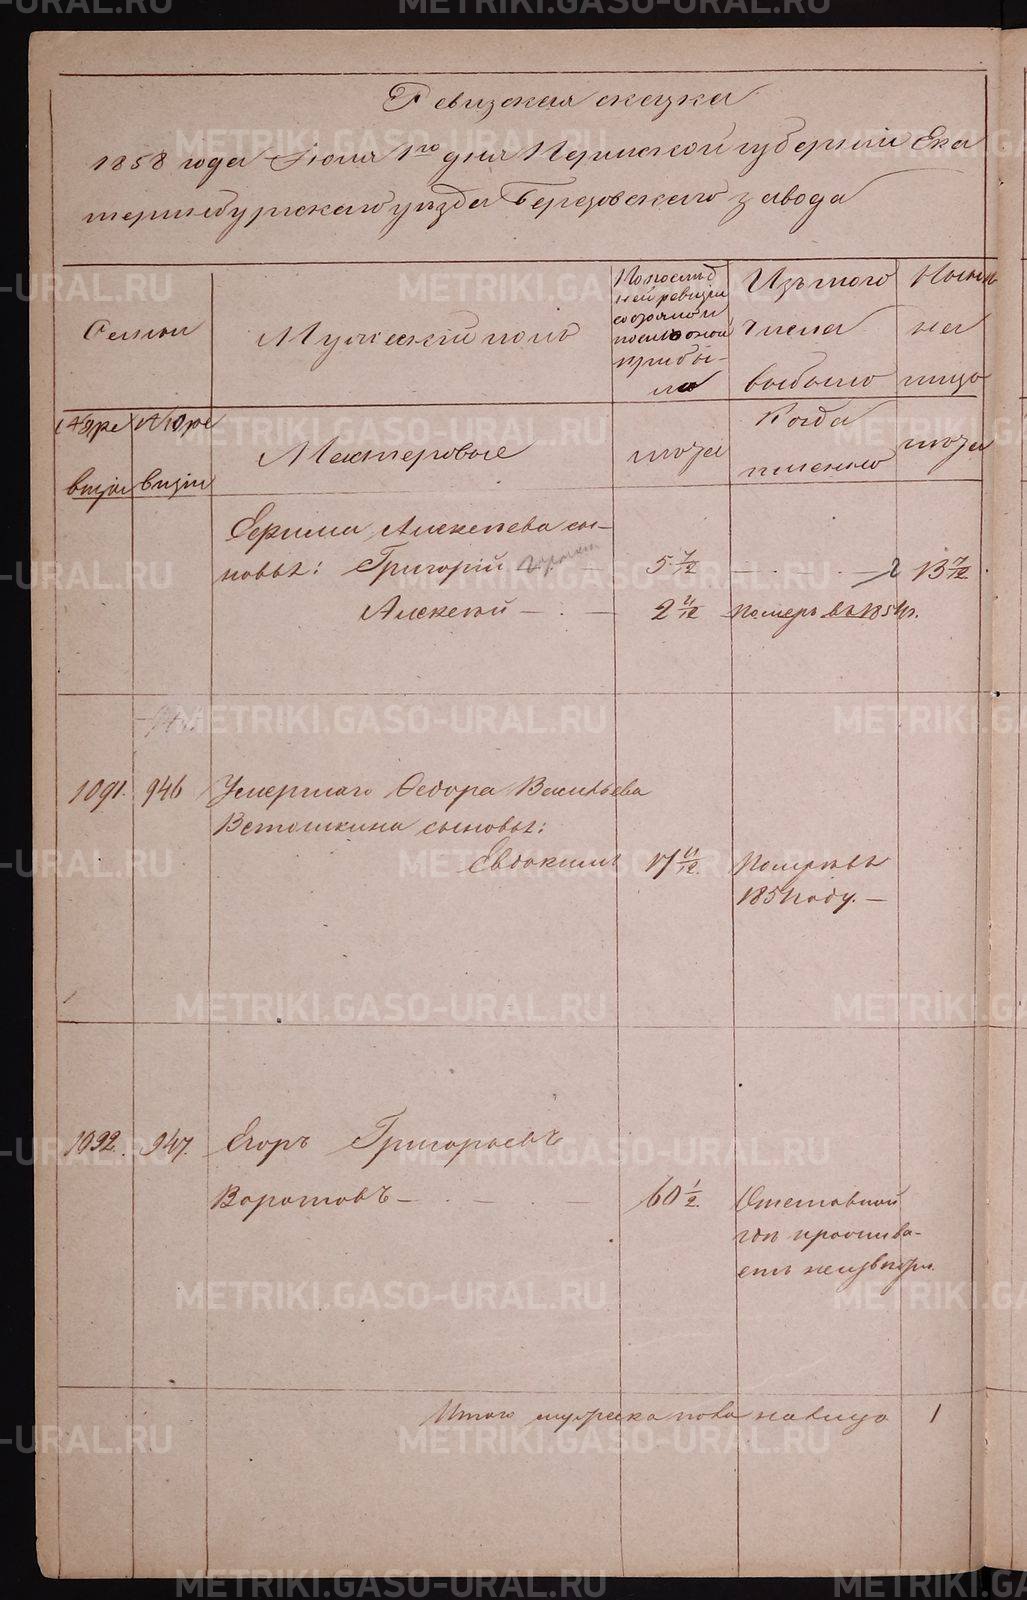 Ревизская сказка
1858 года Июля 1го дня Пермской губернии Ека
теринбургскаго уезда Березовскаго завода
Семьи
Мужеский полъ
По послед
ней ревизiи
состояло и
после оной
прибы-
ло
Изъ того
числа
выбыло
Ныне
на
лицо
ре
визiи
ре
визiи
Мастеровые
лета
Когда
именно
лета
Ефима Алексеева сы-
новья: Григорiй — 5 7/12 — 13 7/12
Алексей — 2 11/12 померъ въ
1091. 946 Умершаго Федора Васильева
Ветошкина сыновья:
Евдокимъ 17 11/12. Померъ въ
году. —
1092. 947. Егоръ Григорьевъ
Воротовъ — 60 1/2. Отставной
где прожива-
етъ неизвестно.
Итого мужеска пола на лицо 1
METRIKI.GASO-URAL.RU